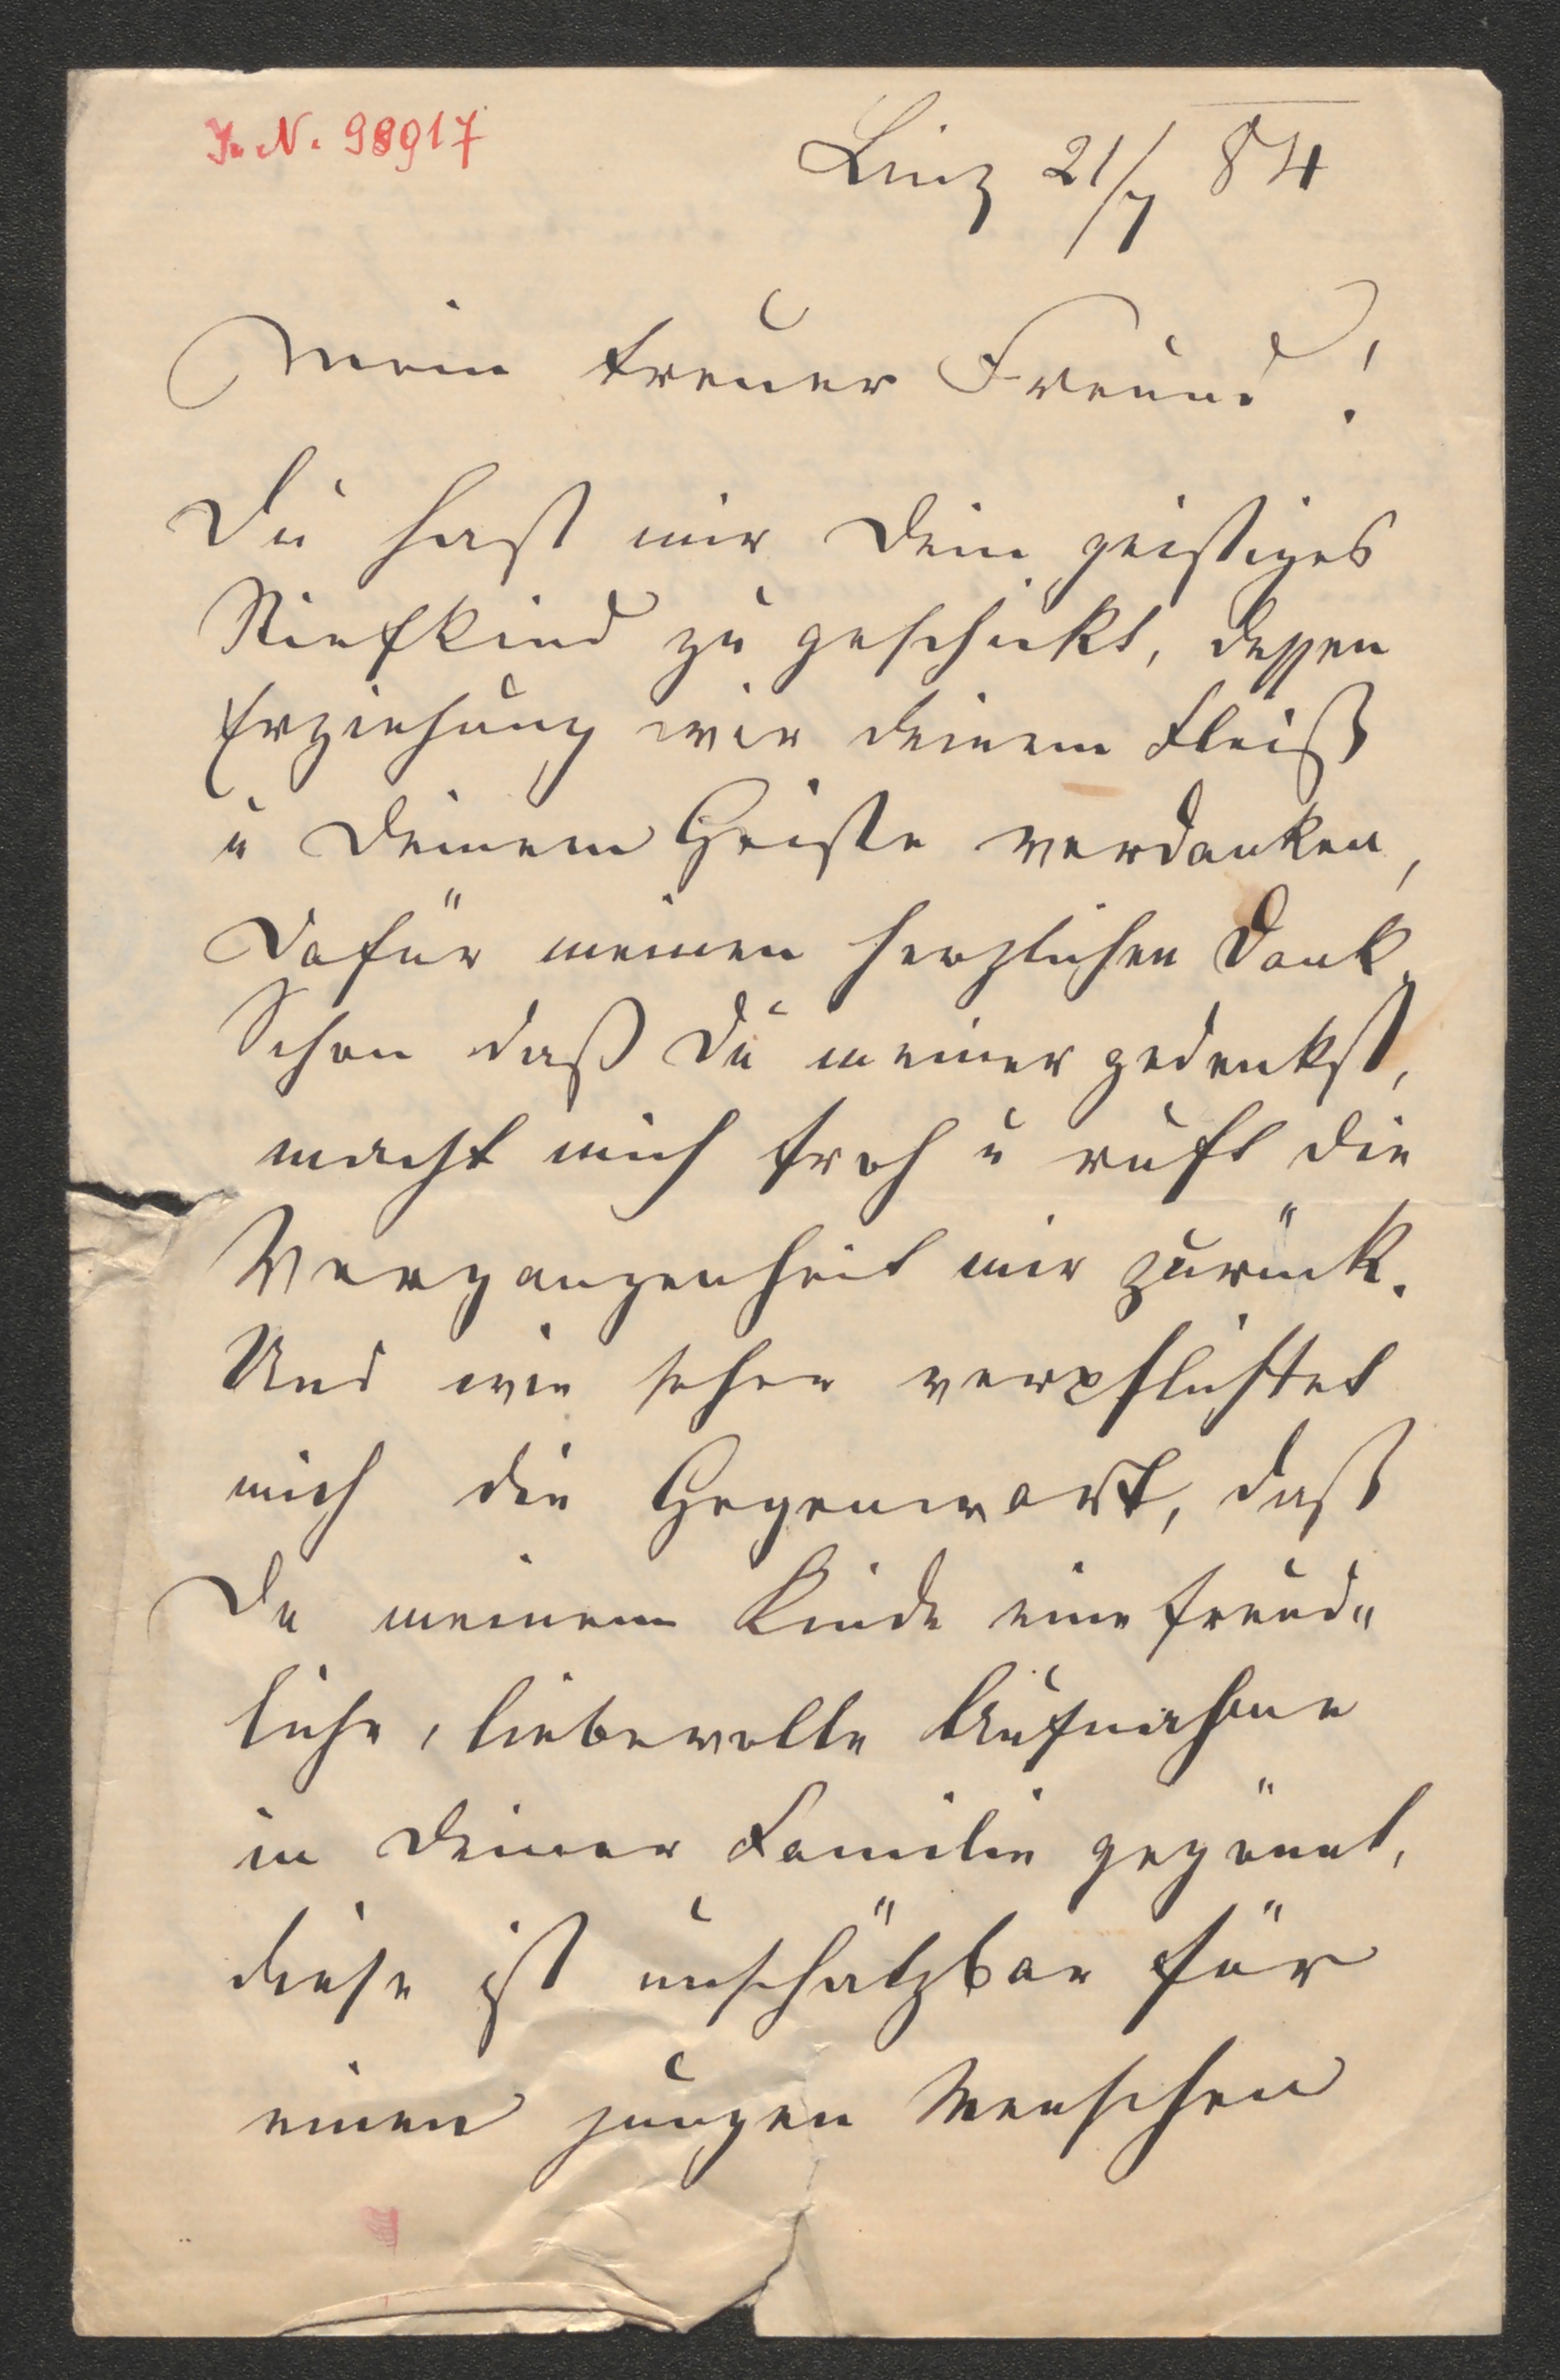 J. N. 98917
Linz 21/7 84
Mein treuer Freund!
Du hast mir Dein geistiges
Stiefkind zu geschickt, dessen
Erziehung wir deinem Fleiß
u Deinem Geiste verdanken,
Dafür meinen herzlichen Dank.
Schon daß Du meiner gedenkst,
macht mich froh u ruft die
Vergangenheit mir zurück.
Und wie sehr verpflichtet
mich die Gegenwart, daß
Du meinem Kinde eine freud„
liche, liebevolle Aufnahme
in Deiner Familie gegönnt,
diese ist unschätzbar für
einen jungen Menschen